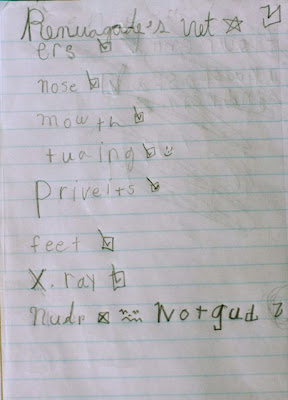 Renuagade's vet
ers
nose
mowth
tuaing
priveits
feet
X.ray
Nudr Notgud